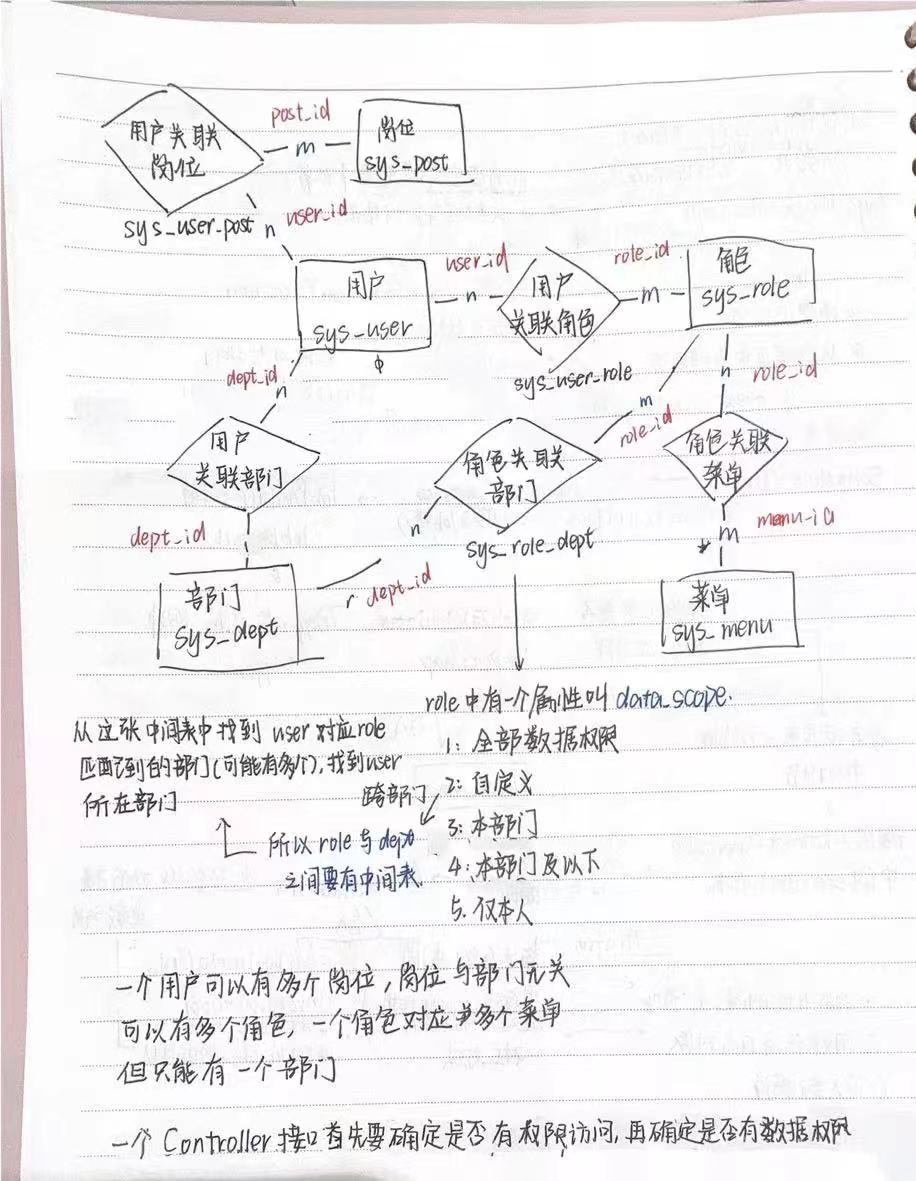 用户关联
岗位
sys_user_post
post_id
m
岗位
sys_post
n
user_id
用户
sys_user
user_id
n
用户
关联角色
sys_user_role
role_id
m
角色
sys_role
dept_id
n
用户
关联部门
dept_id
部门
sys_dept
m
role_id
角色关联
部门
n
sys_role_dept
r
dept_id
n
role_id
角色关联
菜单
m
menu_id
菜单
sys_menu
role中有一个属性叫 data_scope.
1: 全部数据权限
2: 自定义
3: 本部门
4: 本部门及以下
5: 仅本人
从这张中间表中找到 user 对应role
匹配到的部门(可能有多个), 找到user
所在部门
跨部门
所以 role 与 dept
之间要有中间表.
一个用户可以有多个岗位, 岗位与部门无关
可以有多个角色, 一个角色对应多个菜单
但只能有一个部门
一个 Controller 接口首先要确定是否有权限访问, 再确定是否有数据权限